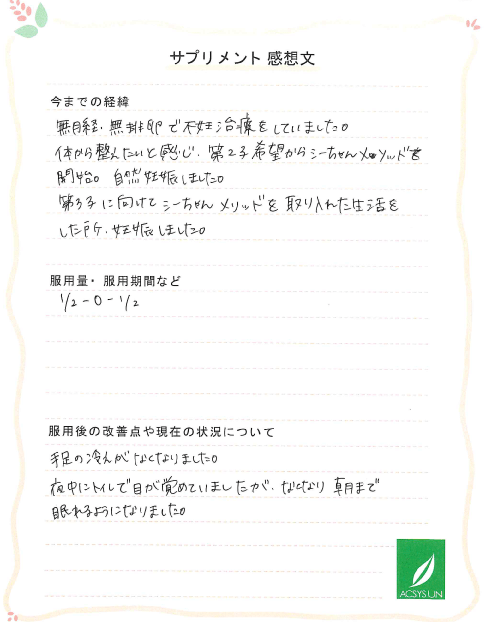 サプリメント 感想文
今までの経緯
無月経、無排卵で不妊治療をしていました。
体から整えたいと感じ、第2子希望からシーちゃんメソッドを
開始。自然妊娠しました。
第3子に向けてシーちゃんメソッドを取り入れた生活を
した所、妊娠しました。
服用量・服用期間など
1/2-0-1/2
服用後の改善点や現在の状況について
手足の冷えがなくなりました。
夜中にトイレで目が覚めていましたが、なくなり朝まで
眠れるようになりました。
ACSYSUN